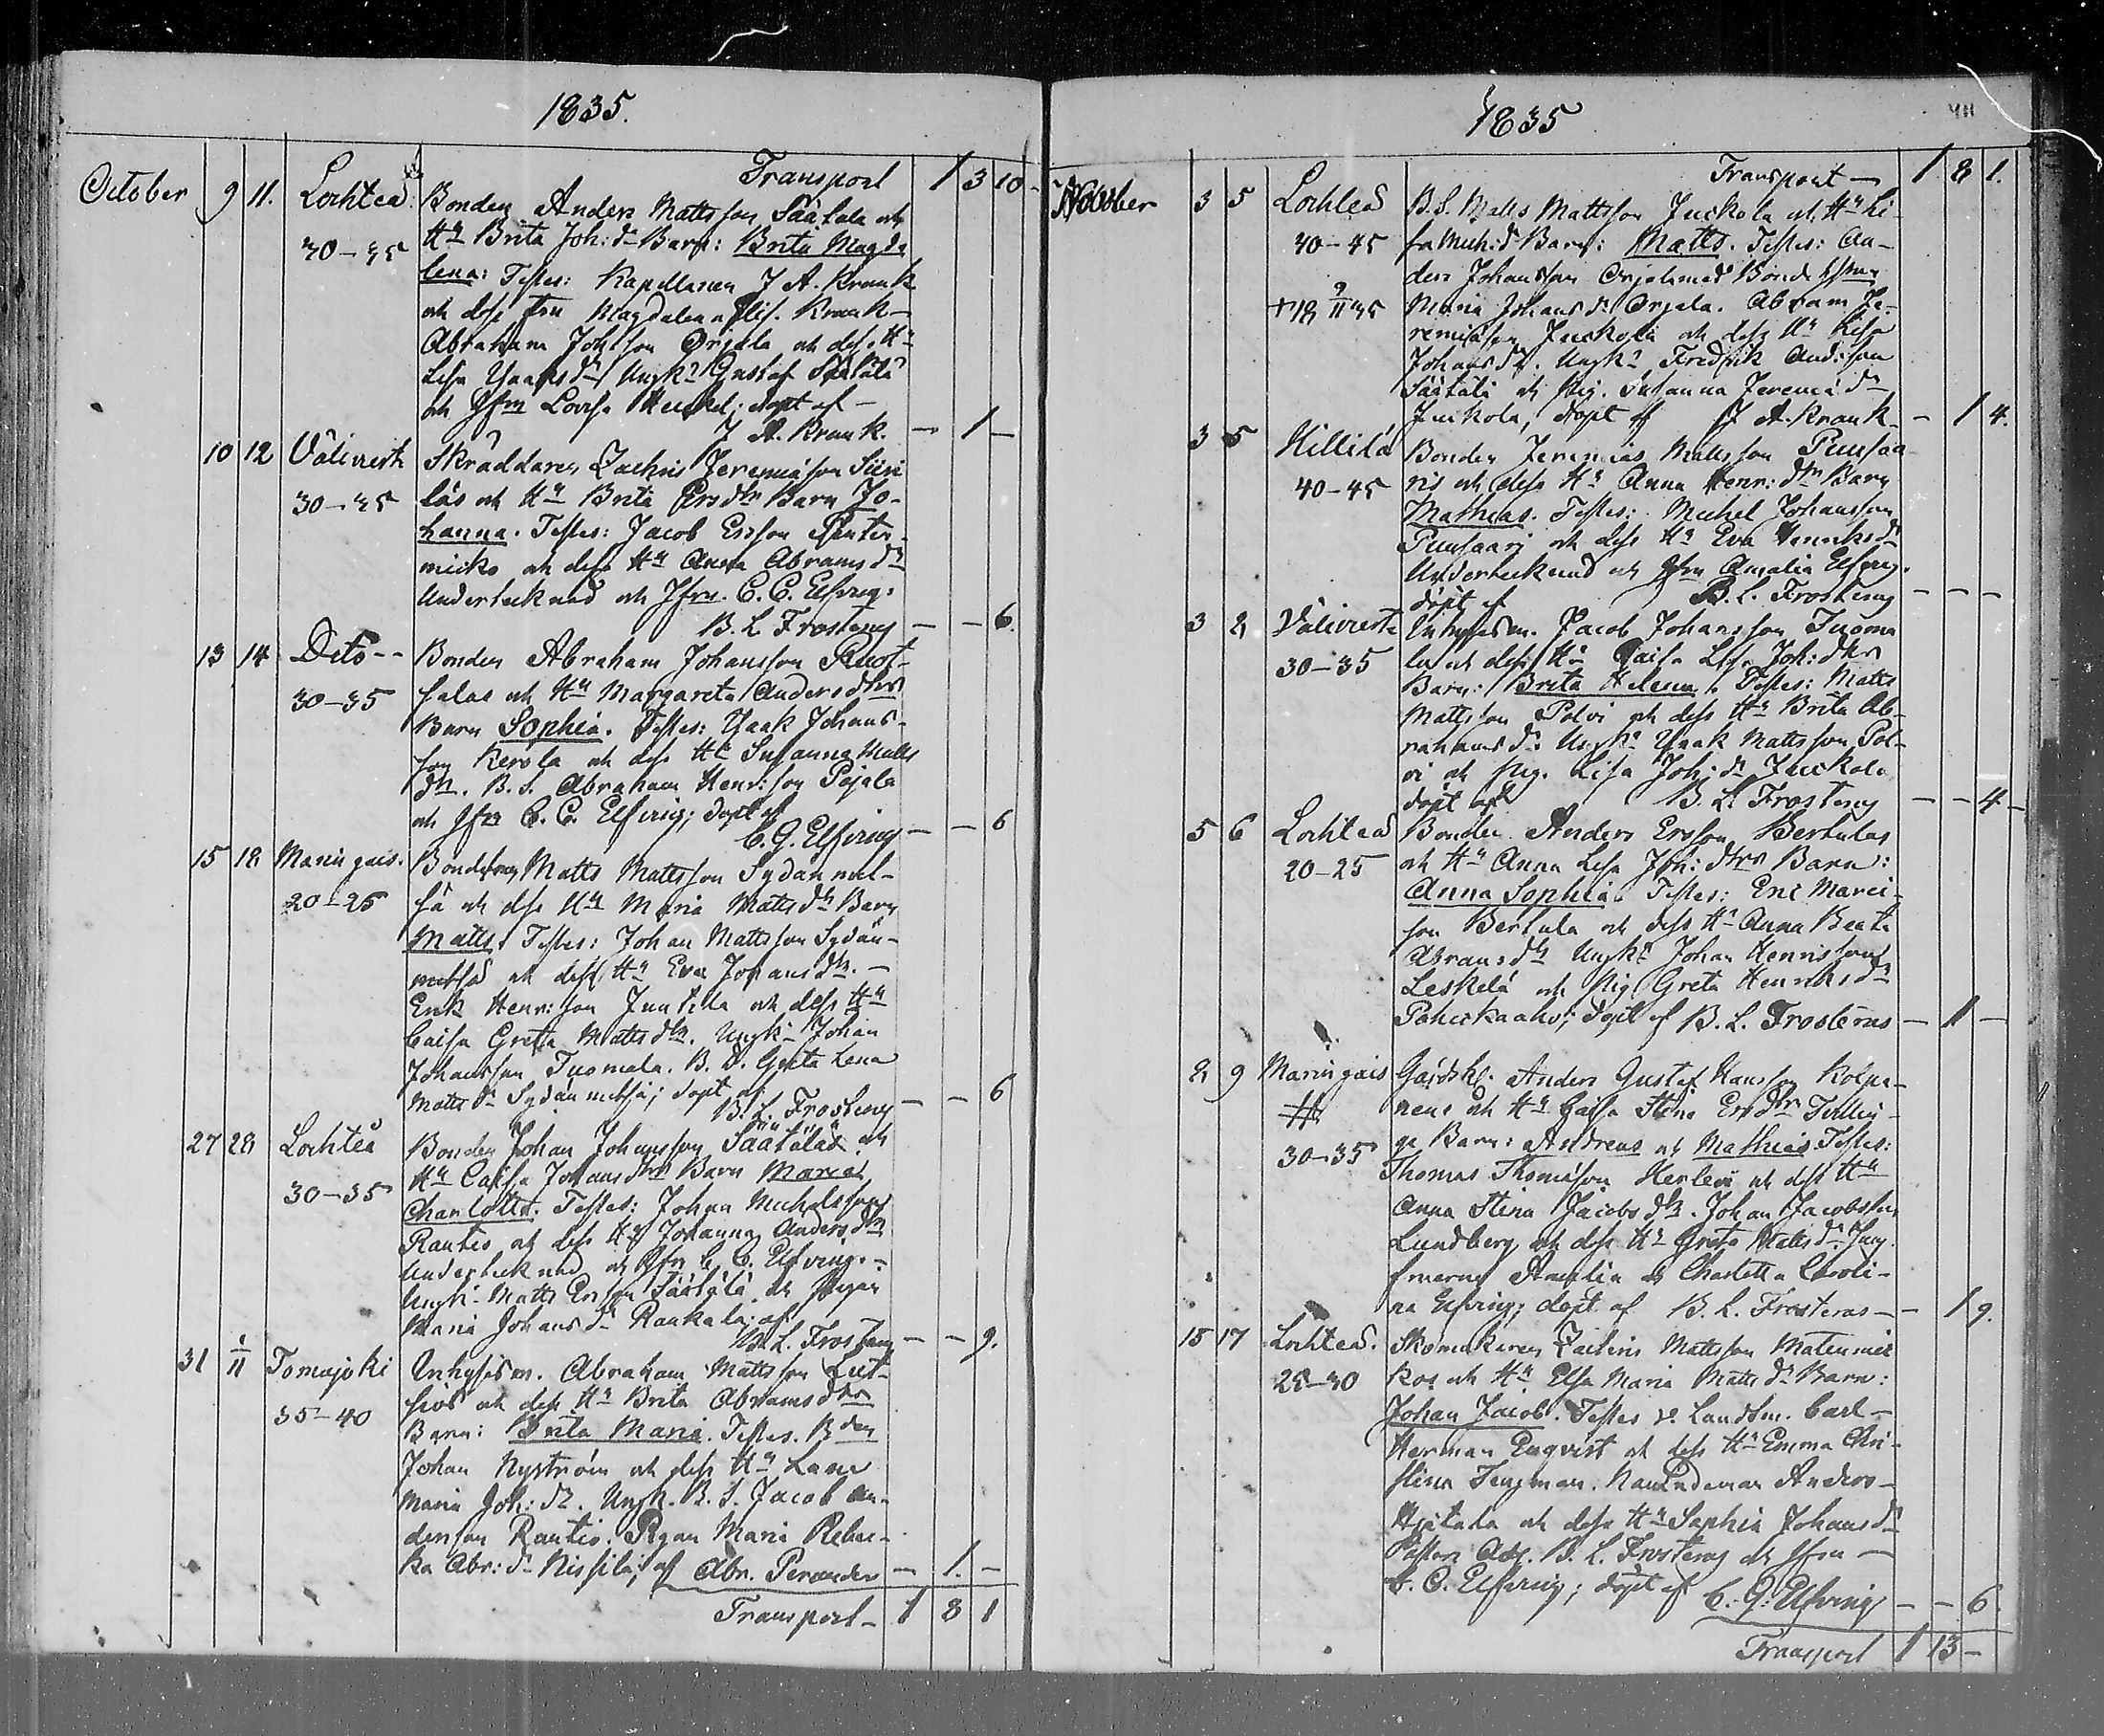 1835.
Transport 1 3 10
October 9 11. Lochteå Bonden Anders Mattsson Säätälä och
30-35 Hu Brita Joh:dr Barn: Brita Magda
lena: Testes: Kapellanen J A. Krank
och dess Fru Magdalena Elis. Krank
Abraham Johsson Orjala och dess Hu
Lisa Isaksdr Ungk. Gustaf Säätälä
och Jfrn Lovisa ; döpt af
J A. Krank. — 1 —
10 12 Välivirta Skräddaren Zachris Jeremiasson Siiri
30-35 läs och Hu Brita Ersdtr Barn Jo-
hanna. Testes: Jacob Ersson
micko och dess Hu Anna Abramsdr
Undertecknad och Jfrn. C. C. Elfving:
B. L Frosterus — — 6.
13 14 Dito -- Bonden Abraham Johansson Ruot-
30-35 salas och Hu Margareta Andersdtrs
Barn Sophia. Testes: Isaak Johans-
son Kerola och dess Hu Susanna Matts
dtr. B. S. Abraham Henr:son Pajala
och Jfrn C. C. Elfving; döpt af
C. G. Elfving — — 6
15 18 Maringais. Bondeson Matts Mattsson Sydänmet-
20-25 sä och dess Hu Maria Mattsdtr Barn
Matts. Testes: Johan Mattsson Sydän-
metsä och dess Hu Eva Johansdtr. —
Erik Henr:son Junttila och dess Hu
Caisa Greta Mattsdtr. Ungk. Johan
Johansson Tuomala. B. D. Greta Lena
Mattsdr Sydänmetsä; döpt af
B. L. Frosterus — — 6
27 28 Lochteå Bonden Johan Johansson Säätäläs och
30-35 Hu Caisa Johansdtrs Barn Maria
Charlotta. Testes: Johan Michelsson
Rautio och dess Hu Johanna Andersdtr
Undertecknad och Jfrn C. C. Elfving. -
Ungk. Matts Ersson Säätälä och Pigan
Maria Johansdr Raukala; af
B. L. Frosterus — — 9.
31 1/11 Tomujoki Inhysesm. Abraham Mattsson
35-40 och dess Hu Brita Abramsdtrs
Barn: Brita Maria. Testes. Bden
Johan Nyström och dess Hu Lena
Maria Joh:dr. Ungk. B. S. Jacob An-
dersson Rautio. Pigan Maria Rebec-
ka Abr:dr Nissilä; af Abr. Perander — 1. —
Transport — 1 8 1
1835
Transport — 1 8 1.
November 3 5 Lochteå B. S. Matts Mattsson Juckola och Hu Li-
40-45 sa Mich:dr Barn: Matts. Testes: An-
ders Johansson Orjala med Bonde Hustrun
+18 9/11 35 Maria Johansdr Orjala. Abram Je-
remiasson Juckola och dess Hu Lisa
Johansdr. Ungk. Fredrik Andersson
Säätälä och Pig. Susanna Jeremiædr
Juckola, döpt af J A. Krank — 1 4.
3 5 Hillilä Bonden Jeremias Mattsson Puusaa
40-45 ris och dess Hu Anna Henr:dtr Barn
Mathias. Testes: Michel Johansson
Puusaari och dess Hu Eva Henriksdr
Undertecknad och Jfrn Amalia Elfving.
döpt af B. L. Frosterus — — —
3 8 Välivirta Inhysesm. Jacob Johansson Tuoma
30-35 la och dess Hu Caisa Lisa Joh:dtrs
Barn: Brita Helena. Testes: Matts
Mattsson Polvi och dess Hu Brita Ab-
rahamsdr Ungk. Isaak Mattsson Pol-
vi och Pig. Lisa Joh:dr Juckola
döpt af B. L. Frosterus — — 4 -
5 6 Lochteå Bonden Anders Ersson Bertulas
20-25 och Hu Anna Lisa Joh:dtrs Barn:
Anna Sophia. Testes: Eric Marci-
son Bertula och dess Hu Anna Beata
Abramsdtr Ungk. Johan Henriksson
Leskelä och Pig Greta Henriksdr
Pahickaaho; döpt af B. L. Frosterus — 1 —
8 9 Maringais Gårdsk. Anders Gustaf Hansson Kolpa-
30-35 nens och Hu Caisa Stina Ersdtr Tvillin-
ga Barn: Andreas och Mathias Testes:
Thomas Thomasson Herlevi och dess Hu
Anna Stina Jacobsdtr. Johan Jacobsson
Lundberg och dess Hu Greta Mattsdr. Jung-
fruerna Amalia och Charlotta Caroli-
na Elfving; döpt af B. L. Frosterus — — 1 9.
15 17 Lochteå. Skomakaren Zachris Mattsson Matinmic
25-30 kos och Hu Elsa Maria Mattsdr Barn:
Johan Jacob. Testes v. Landtm. Carl —
Herman Enqvist och dess Hu Emma Chri-
stina Tengman. Nämndeman Anders —
Hjetala och dess Hu Sophia Johansdr
Pastors Adj. B. L. Frosterus och Jfrn —
C. C. Elfving; döpt af C. G. Elfving — — 6.
Transport 1 13 —